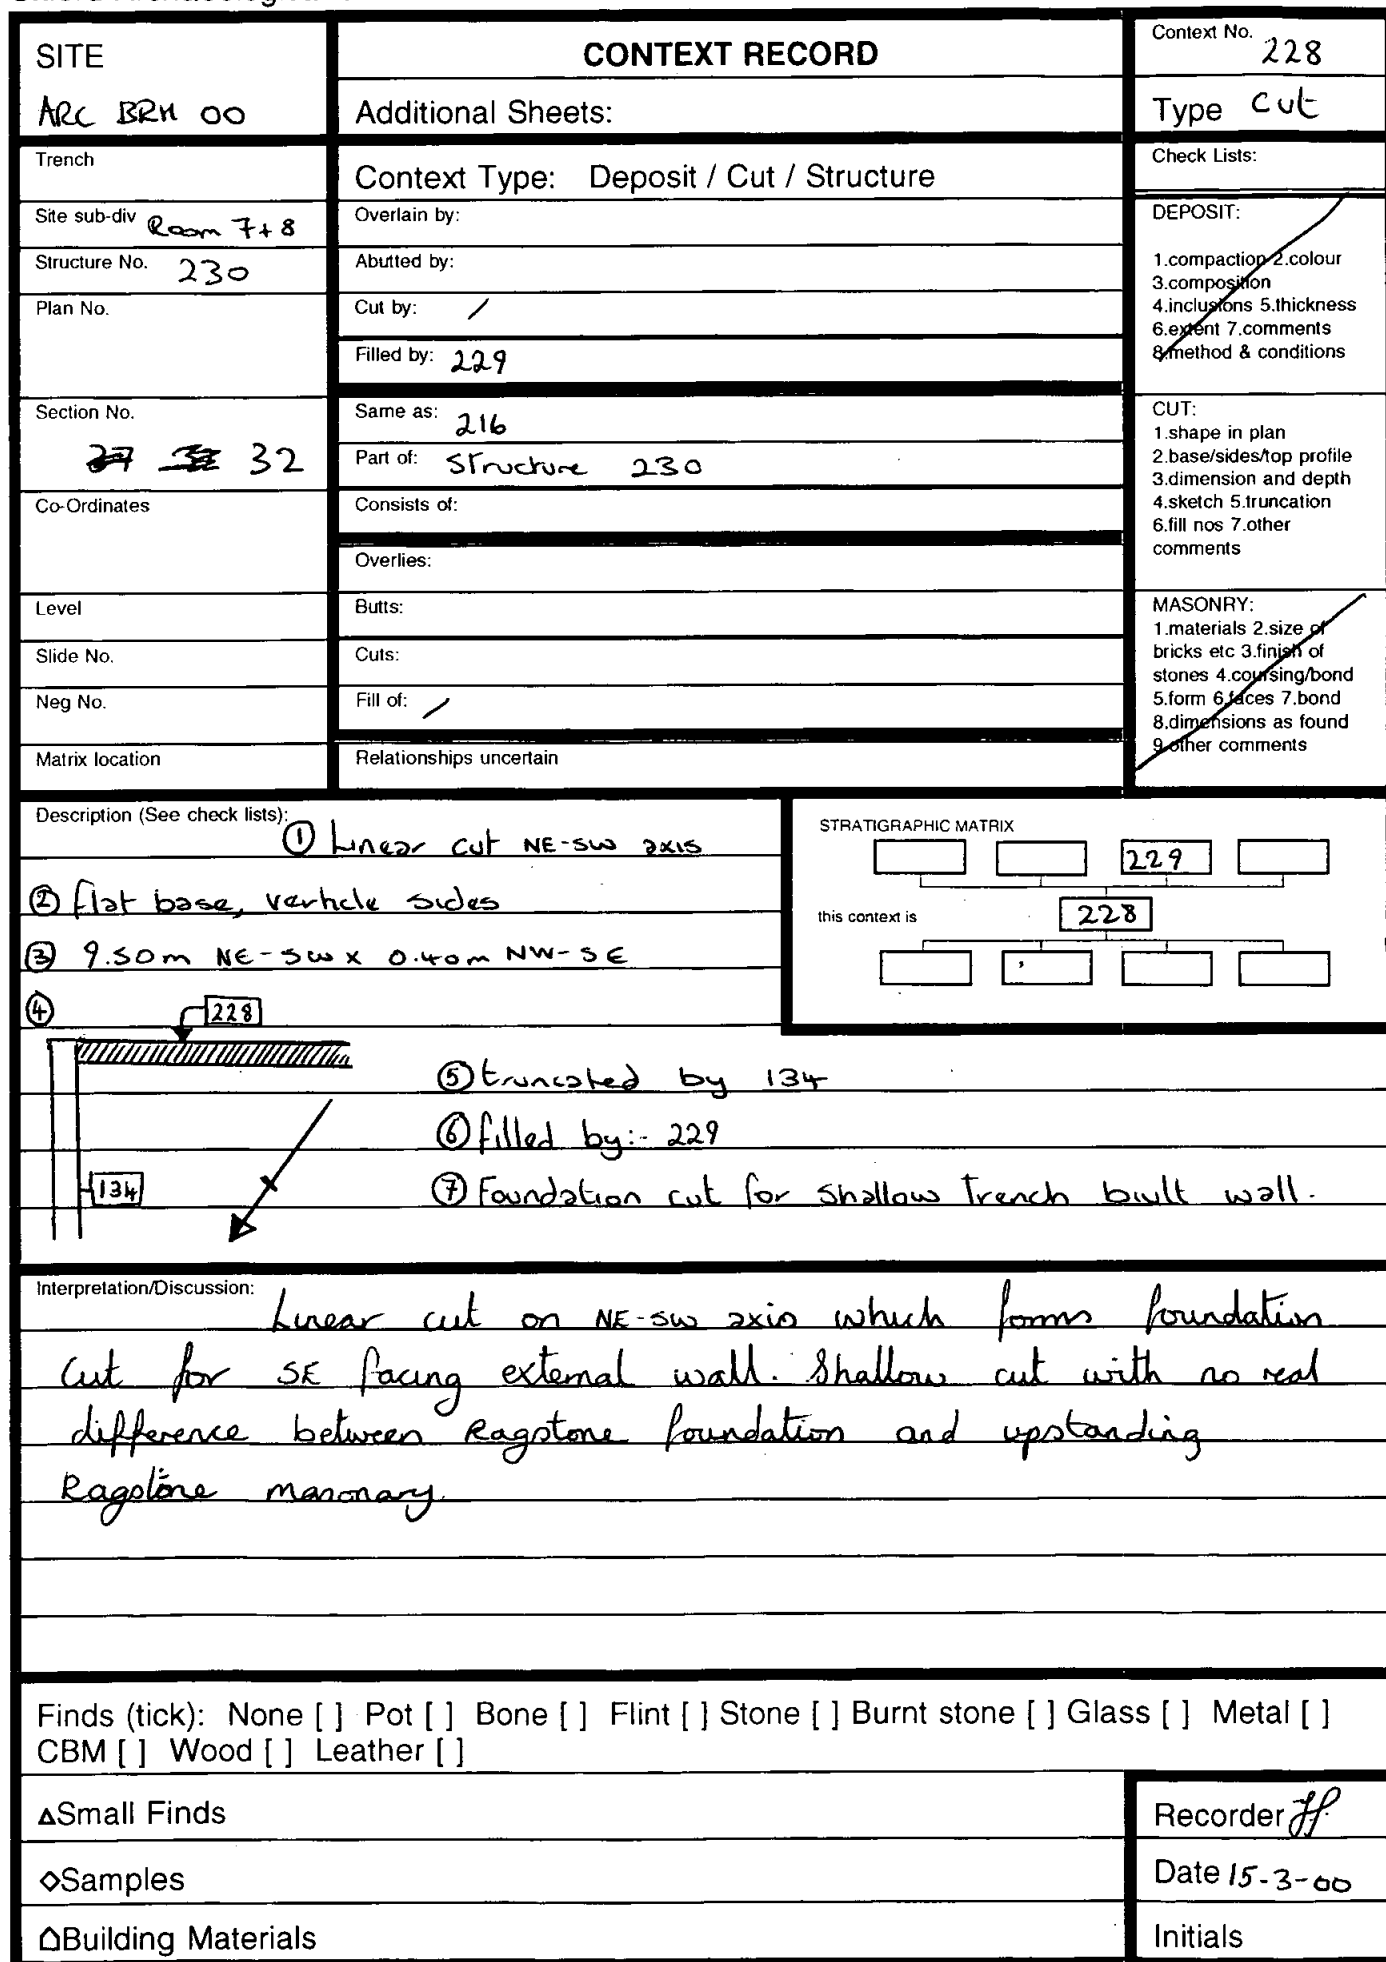 SITE
ARC BRH 00
CONTEXT RECORD
Additional Sheets:
Context No. 228
Type Cut
Trench
Site sub-div Room 7+8
Structure No. 230
Plan No.
Section No.
32
Co-Ordinates
Level
Slide No.
Neg No.
Matrix location
Context Type: Deposit / Cut / Structure
Overlain by:
Abutted by:
Cut by: /
Filled by: 229
Same as: 216
Part of: Structure 230
Consists of:
Overlies:
Butts:
Cuts:
Fill of: /
Relationships uncertain
Check Lists:
DEPOSIT:
1.compaction 2.colour
3.composition
4.inclusions 5.thickness
6.extent 7.comments
8.method & conditions
CUT:
1.shape in plan
2.base/sides/top profile
3.dimension and depth
4.sketch 5.truncation
6.fill nos 7.other
comments
MASONRY:
1.materials 2.size of
bricks etc 3.finish of
stones 4.coursing/bond
5.form 6.faces 7.bond
8.dimensions as found
9.other comments
Description (See check lists):
① Linear cut NE-SW axis
② flat base, verticle sides
③ 9.50m NE-SW x 0.40m NW-SE
④
228
134
⑤ truncated by 134
⑥ filled by:- 229
⑦ Foundation cut for shallow trench built wall.
STRATIGRAPHIC MATRIX
229
this context is 228
Interpretation/Discussion:
Linear cut on NE-SW axis which forms foundation
cut for SE facing external wall. Shallow cut with no real
difference between Ragstone foundation and upstanding
Ragstone masonary.
Finds (tick): None [ ] Pot [ ] Bone [ ] Flint [ ] Stone [ ] Burnt stone [ ] Glass [ ] Metal [ ]
CBM [ ] Wood [ ] Leather [ ]
△Small Finds
◇Samples
Building Materials
Recorder
Date 15-3-00
Initials